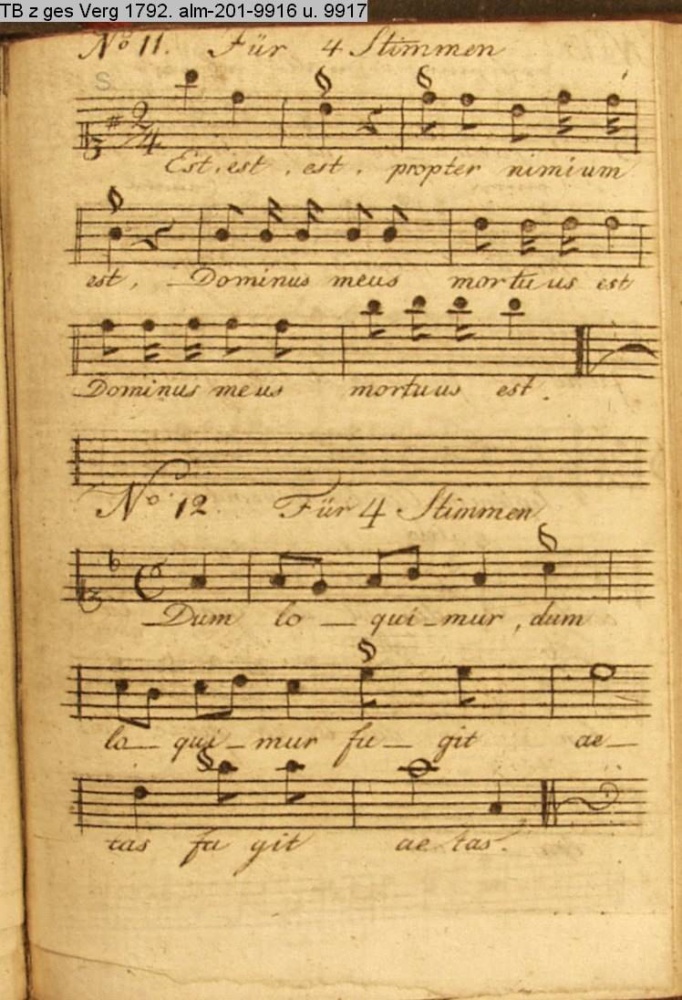 TB z ges Verg 1792. alm-201-9916 u. 9917
No 11. Für 4 Stimmen
S.
2/4
Est, est, est, propter nimium
est, Dominus meus mortuus est
Dominus meus mortuus est.
No. 12. Für 4 Stimmen
Dum lo - qui - mur, dum
lo - qui - mur fu - git ae -
tas fu git ae tas.